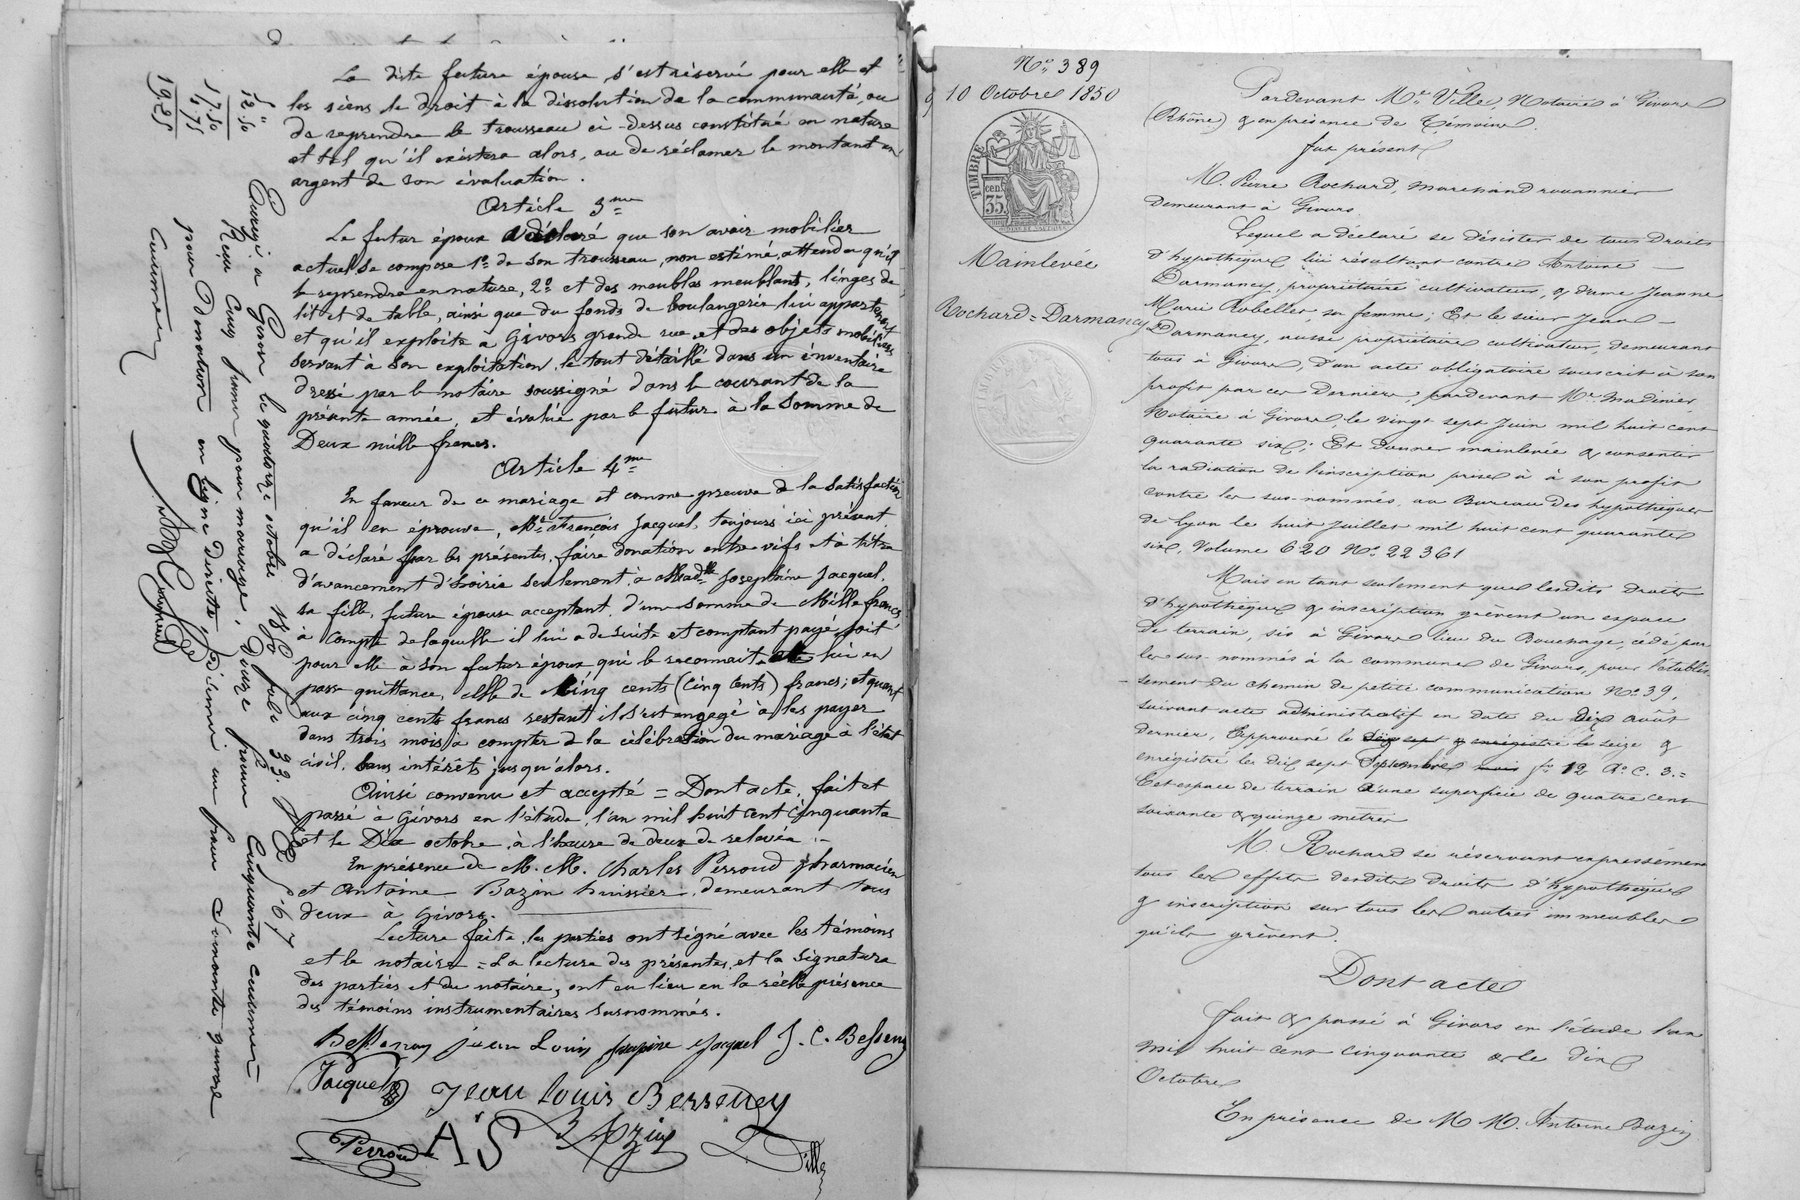 La dite future épouse, s'est réservé pour elle et
les siens le droit à la dissolution de la communauté, ou
de reprendre le trousseau ci-dessus constitué en nature
et tel qu'il existera alors, ou de réclamer le montant en
argent de son évaluation.
Article 3me
Le futur époux a déclaré que son avoir mobilier
actuel se compose 1o de son trousseau, non estimé, attendu qu'il
le reprendra en nature, 2o et des meubles meublants, linges de
lit et de table, ainsi que du fonds de boulangerie lui appartenant
et qu'il exploite à Givors grande rue et des objets mobiliers
servant à son exploitation, le tout détaillé dans un inventaire
dressé par le notaire soussigné dans le courant de la
présente année, et évalué par le futur à la somme de
Deux mille francs.
Article 4me
En faveur de ce mariage et comme preuve de la satisfaction
qu'il en éprouve, Mr François Jacquel, toujours ici présent
a déclaré par les présentes, faire donation entre vifs et à titre
d'avancement d'hoirie seulement, à Madlle Joséphine Jacquel,
sa fille, future épouse acceptant, d'une somme de Mille francs
à compte de laquelle il lui a de suite et comptant payé, soit
pour elle à son futur époux qui le reconnait et lui en
passe quittance, celle de Cinq cents (cinq cents) francs; et quant
aux cinq cents francs restant il s'est engagé à les payer
dans trois mois à compter de la célébration du mariage à l'état
civil, sans intérêts jusqu'alors.
Ainsi convenu et accepté = Dont acte, fait et
passé à Givors en l'étude, l'an mil huit cent cinquante
et le Dix octobre, à l'heure de deux de relevée.
En présence de M.M. Charles Perroud pharmacien
et Antoine Bazin huissier, demeurant tous
deux à Givors.
Lecture faite, les parties ont signé avec les témoins
et le notaire = La lecture des présentes, et la signature
des parties et du notaire, ont eu lieu en la réelle présence
des témoins instrumentaires susnommés.
Bessenay jean Louis Jacquel J. C. Bessenay
Jacquel Jean Louis Bessenay
Perroud A S Bazin Ville
12.50
17.50
1.75
19.25
Enregé à Givors le quatorze octobre 1850 folio 33.
Reçu Cinq francs pour mariage, Douze francs Cinquante centimes
pour Donation en ligne directe, décime un franc soixante quinze
centimes
No 389
10 Octobre 1850
TIMBRE
35 cen.
Mainlevée
Rochard = Darmancy
Pardevant Me Ville, Notaire à Givors
(Rhône) & en présence de Témoins.
fut présent
M. Pierre Rochard, marchand rouannier
Demeurant à Givors.
Lequel a déclaré se désister de tous Droits
d'hypothèque lui résultant contre Antoine
Darmancy, propriétaire cultivateur, & dame Jeanne
Marie Robellet, sa femme; Et le sieur Jean
Darmancy, aussi propriétaire cultivateur, demeurant
tous à Givors, D'un acte obligatoire souscrit à son
profit par ces Derniers, pardevant Me Madinier,
Notaire à Givors, le vingt sept Juin mil huit cent
quarante six; Et Donner mainlevée & consentir
la radiation de l'inscription prise à à son profit
contre les sus-nommés au Bureau des hypothèques
de Lyon le huit Juillet mil huit cent quarante
six, Volume 620 No 22361
Mais en tant seulement que lesdits droits
d'hypothèque & inscription grèvent un espace
de terrain, sis à Givors lieu du Bouchage, cédé par
les sus-nommés à la commune de Givors, pour l'établis-
sement du chemin de petite communication No 39,
suivant acte administratif en date du Dix août
dernier, Approuvé le seize &
enregistré le dix sept Septembre fo 12 Ro C. 3.=
Cet espace de terrain d'une superficie de quatre cent
soixante & quinze mètres
M. Rochard se réservant expressément
tous les effets desdits Droits d'hypothèque
& inscription sur tous les autres immeubles
qu'ils grèvent.
Dont acte
fait & passé à Givors en l'étude l'an
mil huit cent cinquante & le dix
Octobre
En présence de M M. Antoine Bazin